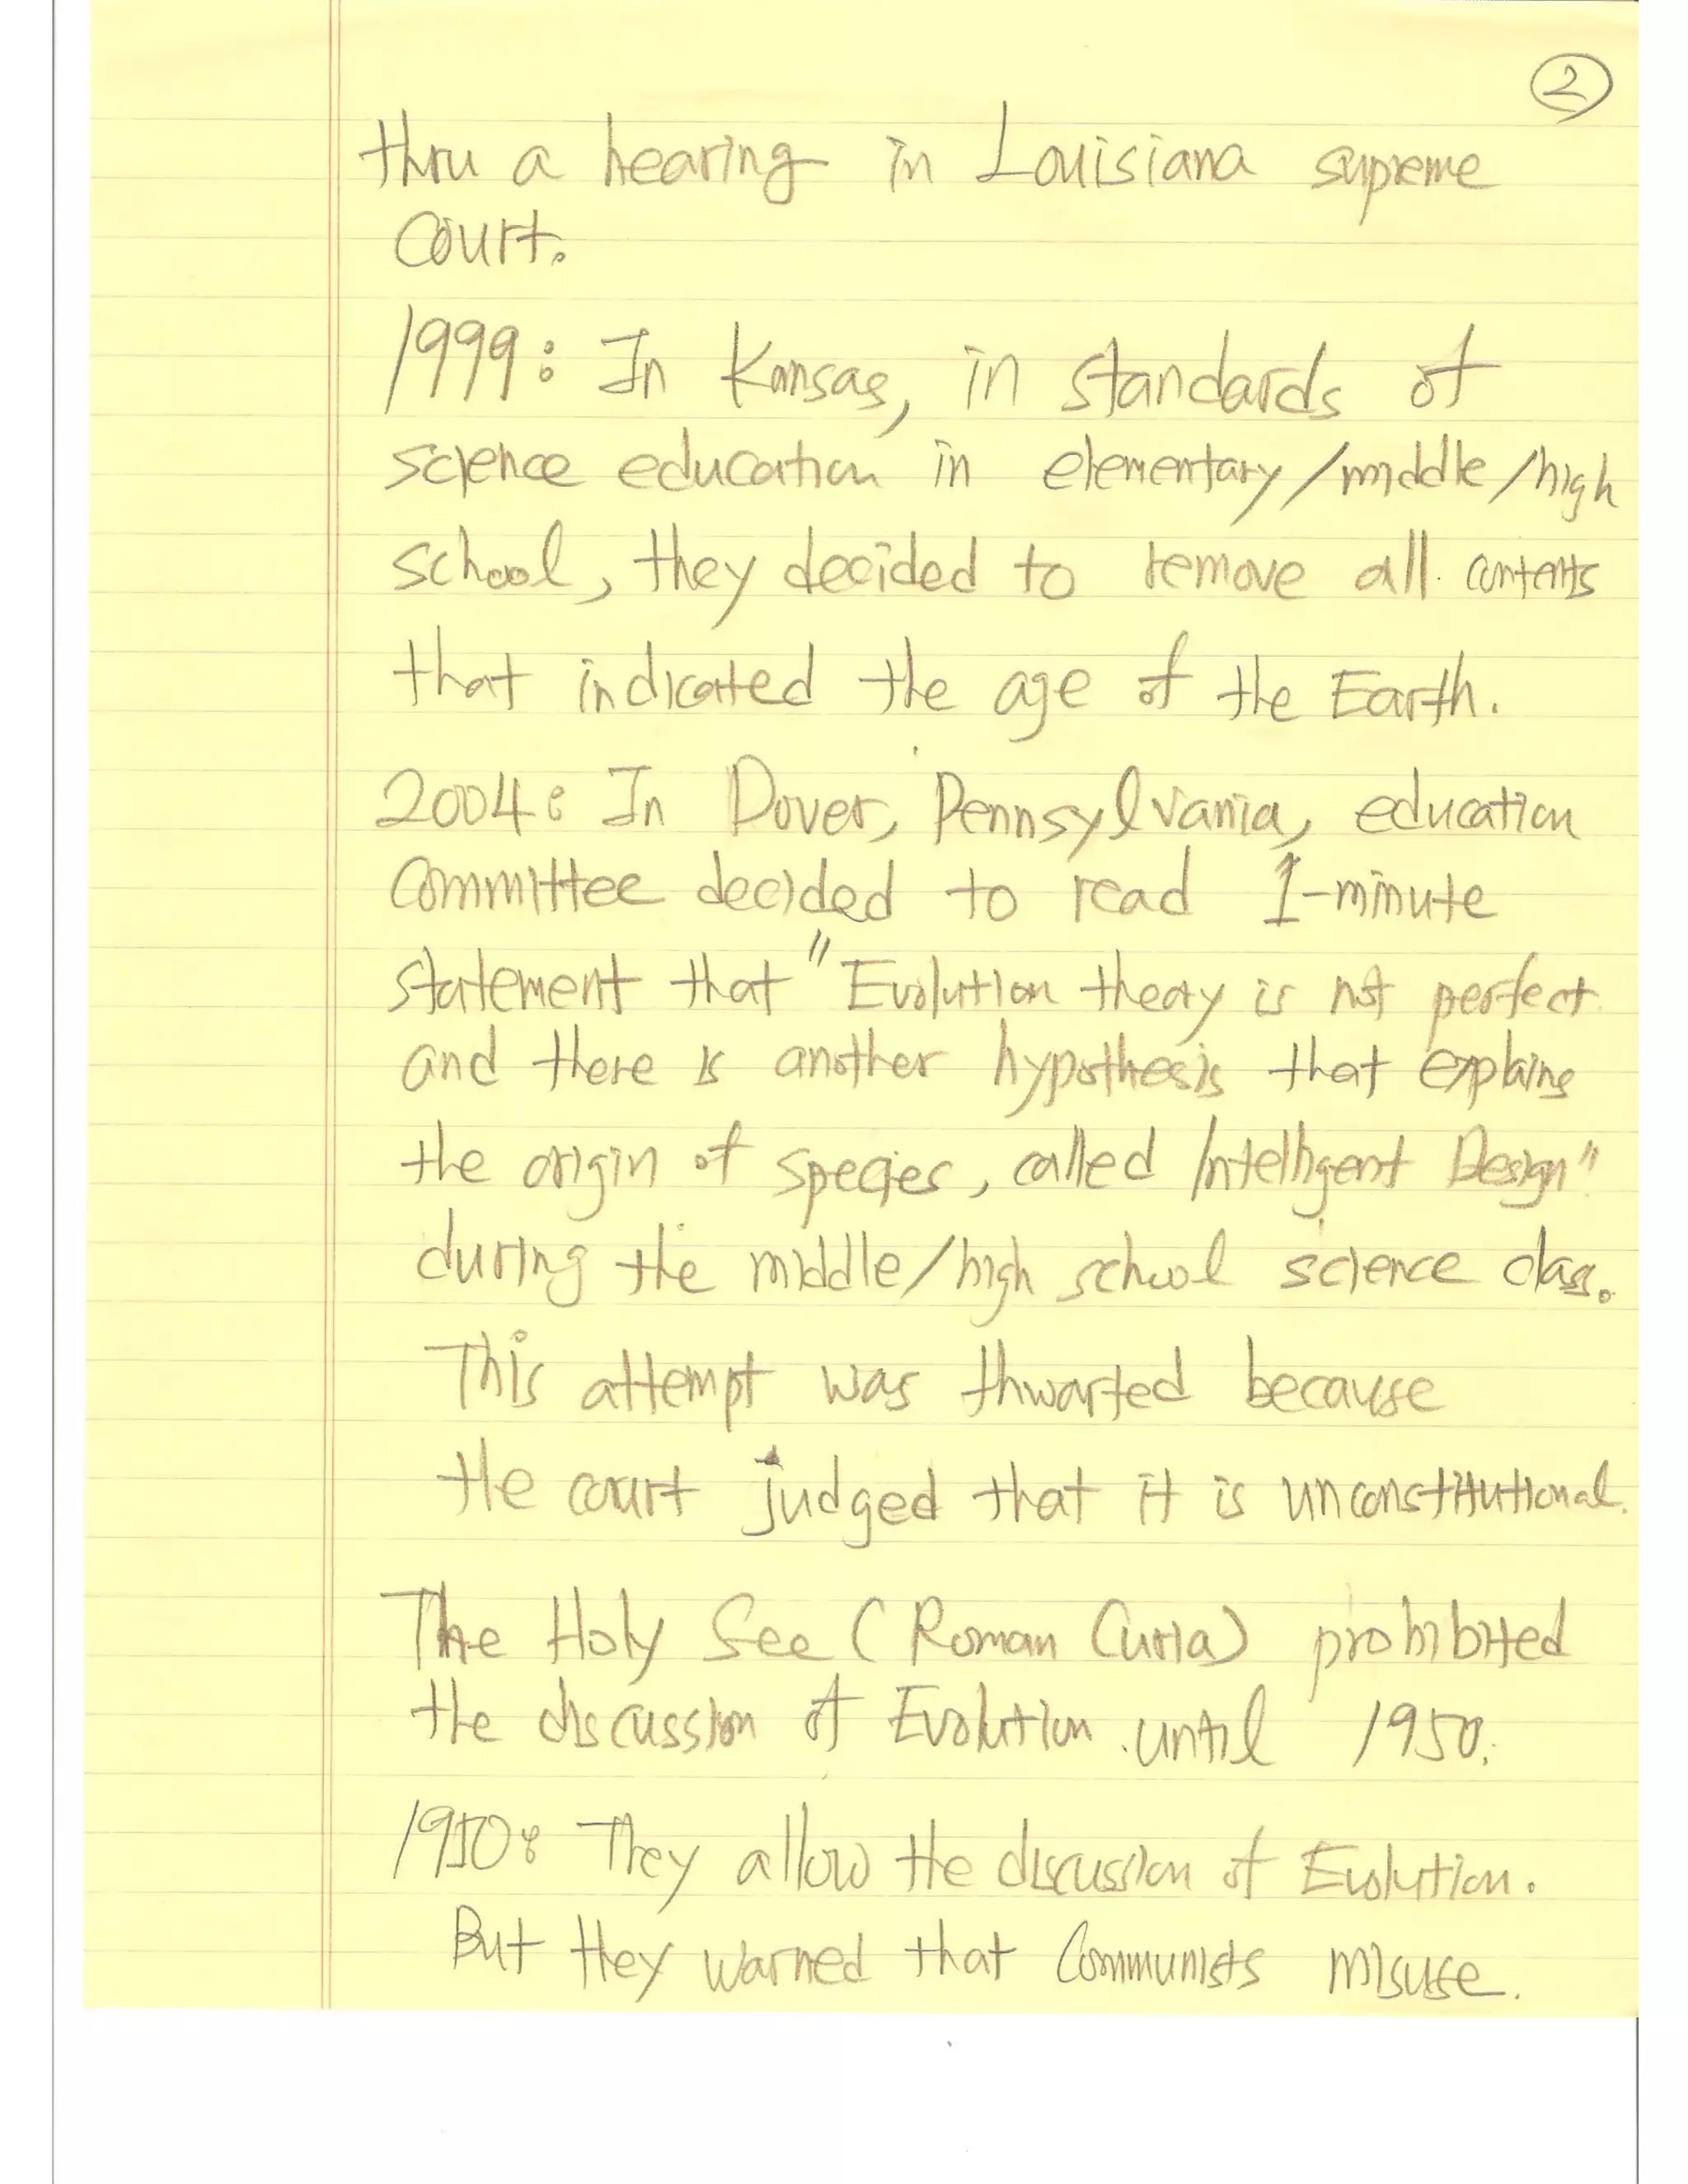 2
thru a hearing in Louisiana supreme
Court.
1999: In Kansas, in standards of
science education in elementary/middle/high
school, they decided to remove all contents
that indicated the age of the Earth.
2004: In Dover, Pennsylvania, education
Committee decided to read 1-minute
statement that "Evolution theory is not perfect
and there is another hypothesis that explains
the origin of species, called Intelligent Design"
during the middle/high school science class.
This attempt was thwarted because
the court judged that it is unconstitutional.
The Holy See (Roman Curia) prohibited
the discussion of Evolution until 1950.
1950: They allow the discussion of Evolution.
But they warned that Communists misuse.